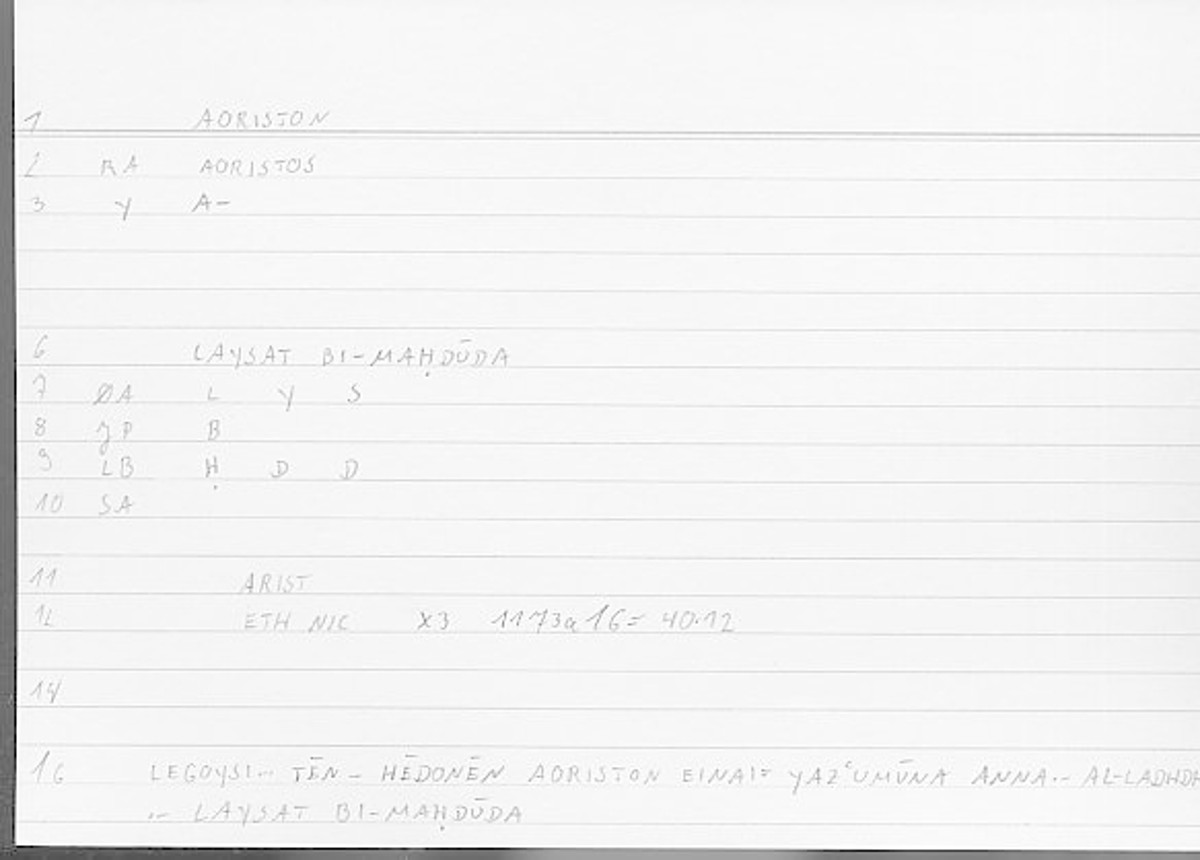 1 AORISTON
2 RA AORISTOS
3 Y A-
6 LAYSAT BI-MAḤDŪDA
7 ØA L Y S
8 JP B
9 LB Ḥ D D
10 SA
11 ARIST
12 ETH NIC X3 1173a16= 40.12
14
16 LEGOYSI.- TĒN - HĒDONĒN AORISTON EINAI= YAZʿUMŪNA ANNA.- AL-LADHDH
.- LAYSAT BI-MAḤDŪDA